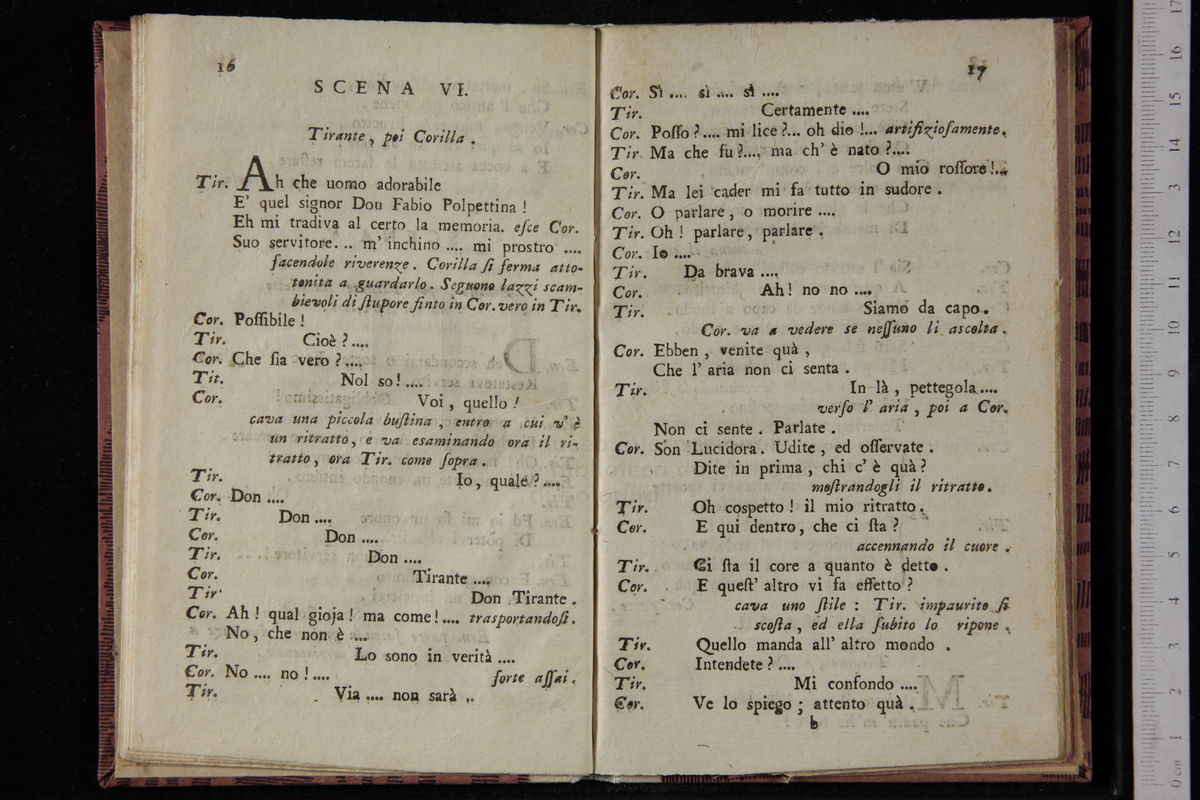 16
SCENA VI.
Tirante, poi Corilla.
Tir. Ah che uomo adorabile
E' quel signor Don Fabio Polpettina!
Eh mi tradiva al certo la memoria. eſce Cor.
Suo servitore... m' inchino .... mi prostro ....
facendole riverenze. Corilla ſi ferma atto-
tonita a guardarlo. Seguono lazzi scam-
bievoli di ſtupore finto in Cor. vero in Tir.
Cor. Poſſibile!
Tir. Cioè?....
Cor. Che ſia vero?....
Tit. Nol so!....
Cor. Voi, quello!
cava una piccola buſtina, entro a cui v' è
un ritratto, e va esaminando ora il ri-
tratto, ora Tir. come ſopra.
Tir. Io, quale?....
Cor. Don ....
Tir. Don ....
Cor. Don ....
Tir. Don ....
Cor. Tirante ....
Tir. Don Tirante.
Cor. Ah! qual gioja! ma come!.... trasportandoſi.
No, che non è ....
Tir. Lo sono in verità ....
Cor. No .... no!.... forte aſſai.
Tir. Via .... non sarà ..
17
Cor. Sì .... sì .... sì ....
Tir. Certamente ....
Cor. Poſſo?.... mi lice?... oh dio!... artifizioſamente.
Tir. Ma che fu?...., ma ch' è nato?....
Cor. O mio roſſore!...
Tir. Ma lei cader mi fa tutto in sudore.
Cor. O parlare, o morire ....
Tir. Oh! parlare, parlare.
Cor. Io ....
Tir. Da brava ....
Cor. Ah! no no ....
Tir. Siamo da capo.
Cor. va a vedere se neſſuno li ascolta.
Cor. Ebben, venite quà,
Che l' aria non ci senta.
Tir. In là, pettegola....
verſo l' aria, poi a Cor.
Non ci sente. Parlate.
Cor. Son Lucidora. Udite, ed oſſervate.
Dite in prima, chi c' è quà?
moſtrandogli il ritratto.
Tir. Oh cospetto! il mio ritratto.
Cor. E qui dentro, che ci ſta?
accennando il cuore.
Tir. Ci ſta il core a quanto è detto.
Cor. E queſt' altro vi fa effetto?
cava uno ſtile: Tir. impaurito ſi
scoſta, ed ella ſubito lo ripone.
Tir. Quello manda all' altro mondo.
Cor. Intendete?....
Tir. Mi confondo ....
Cor. Ve lo spiego; attento quà.
b